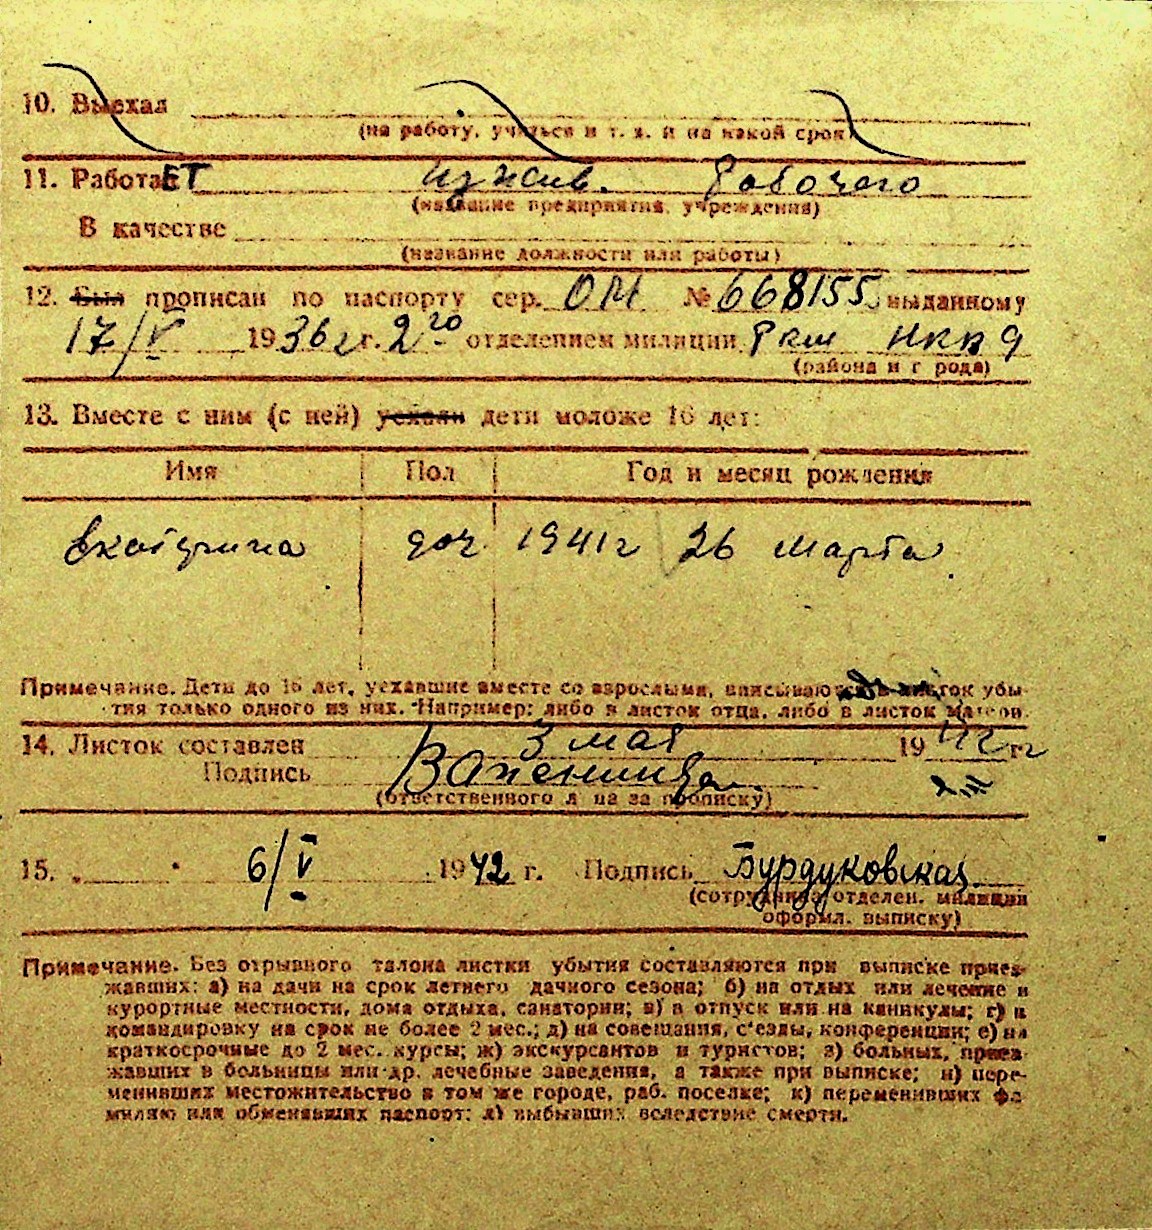 10. Выехал
(на работу, учиться и т. д. и на какой срок)
11. РаботаЕТ изжив. Рабочего
(название предприятия, учреждения)
В качестве
(название должности или работы)
12. Был прописан по паспорту сер. ОМ № 668155 выданному
17/V 1936 г. 2го отделением милиции РКМ НКВД
(района и города)
13. Вместе с ним (с ней) уехали дети моложе 16 лет:
Имя Пол Год и месяц рождения
Екатерина доч 1941 г 26 марта
Примечание. Дети до 16 лет, уехавшие вместе со взрослыми, вписываются в листок убы-
тия только одного из них. Например: либо в листок отца, либо в листок матери.
14. Листок составлен 3 мая 19 г.
Подпись
(ответственного лица за прописку)
15. 6/V 1942 г. Подпись Бурдуковская
(сотрудника отделен. милиции
оформл. выписку)
Примечание. Без отрывного талона листки убытия составляются при выписке приез-
жавших: а) на дачи на срок летнего дачного сезона; б) на отдых или лечение в
курортные местности, дома отдыха, санатории; в) в отпуск или на каникулы; г) в
командировку на срок не более 2 мес.; д) на совещания, с'езды, конференции; е) на
краткосрочные до 2 мес. курсы; ж) экскурсантов и туристов; з) больных, приез-
жавших в больницы или др. лечебные заведения, а также при выписке; и) пере-
менивших местожительство в том же городе, раб. поселке; к) переменивших фа-
милию или обменявших паспорт; л) выбывших вследствие смерти.